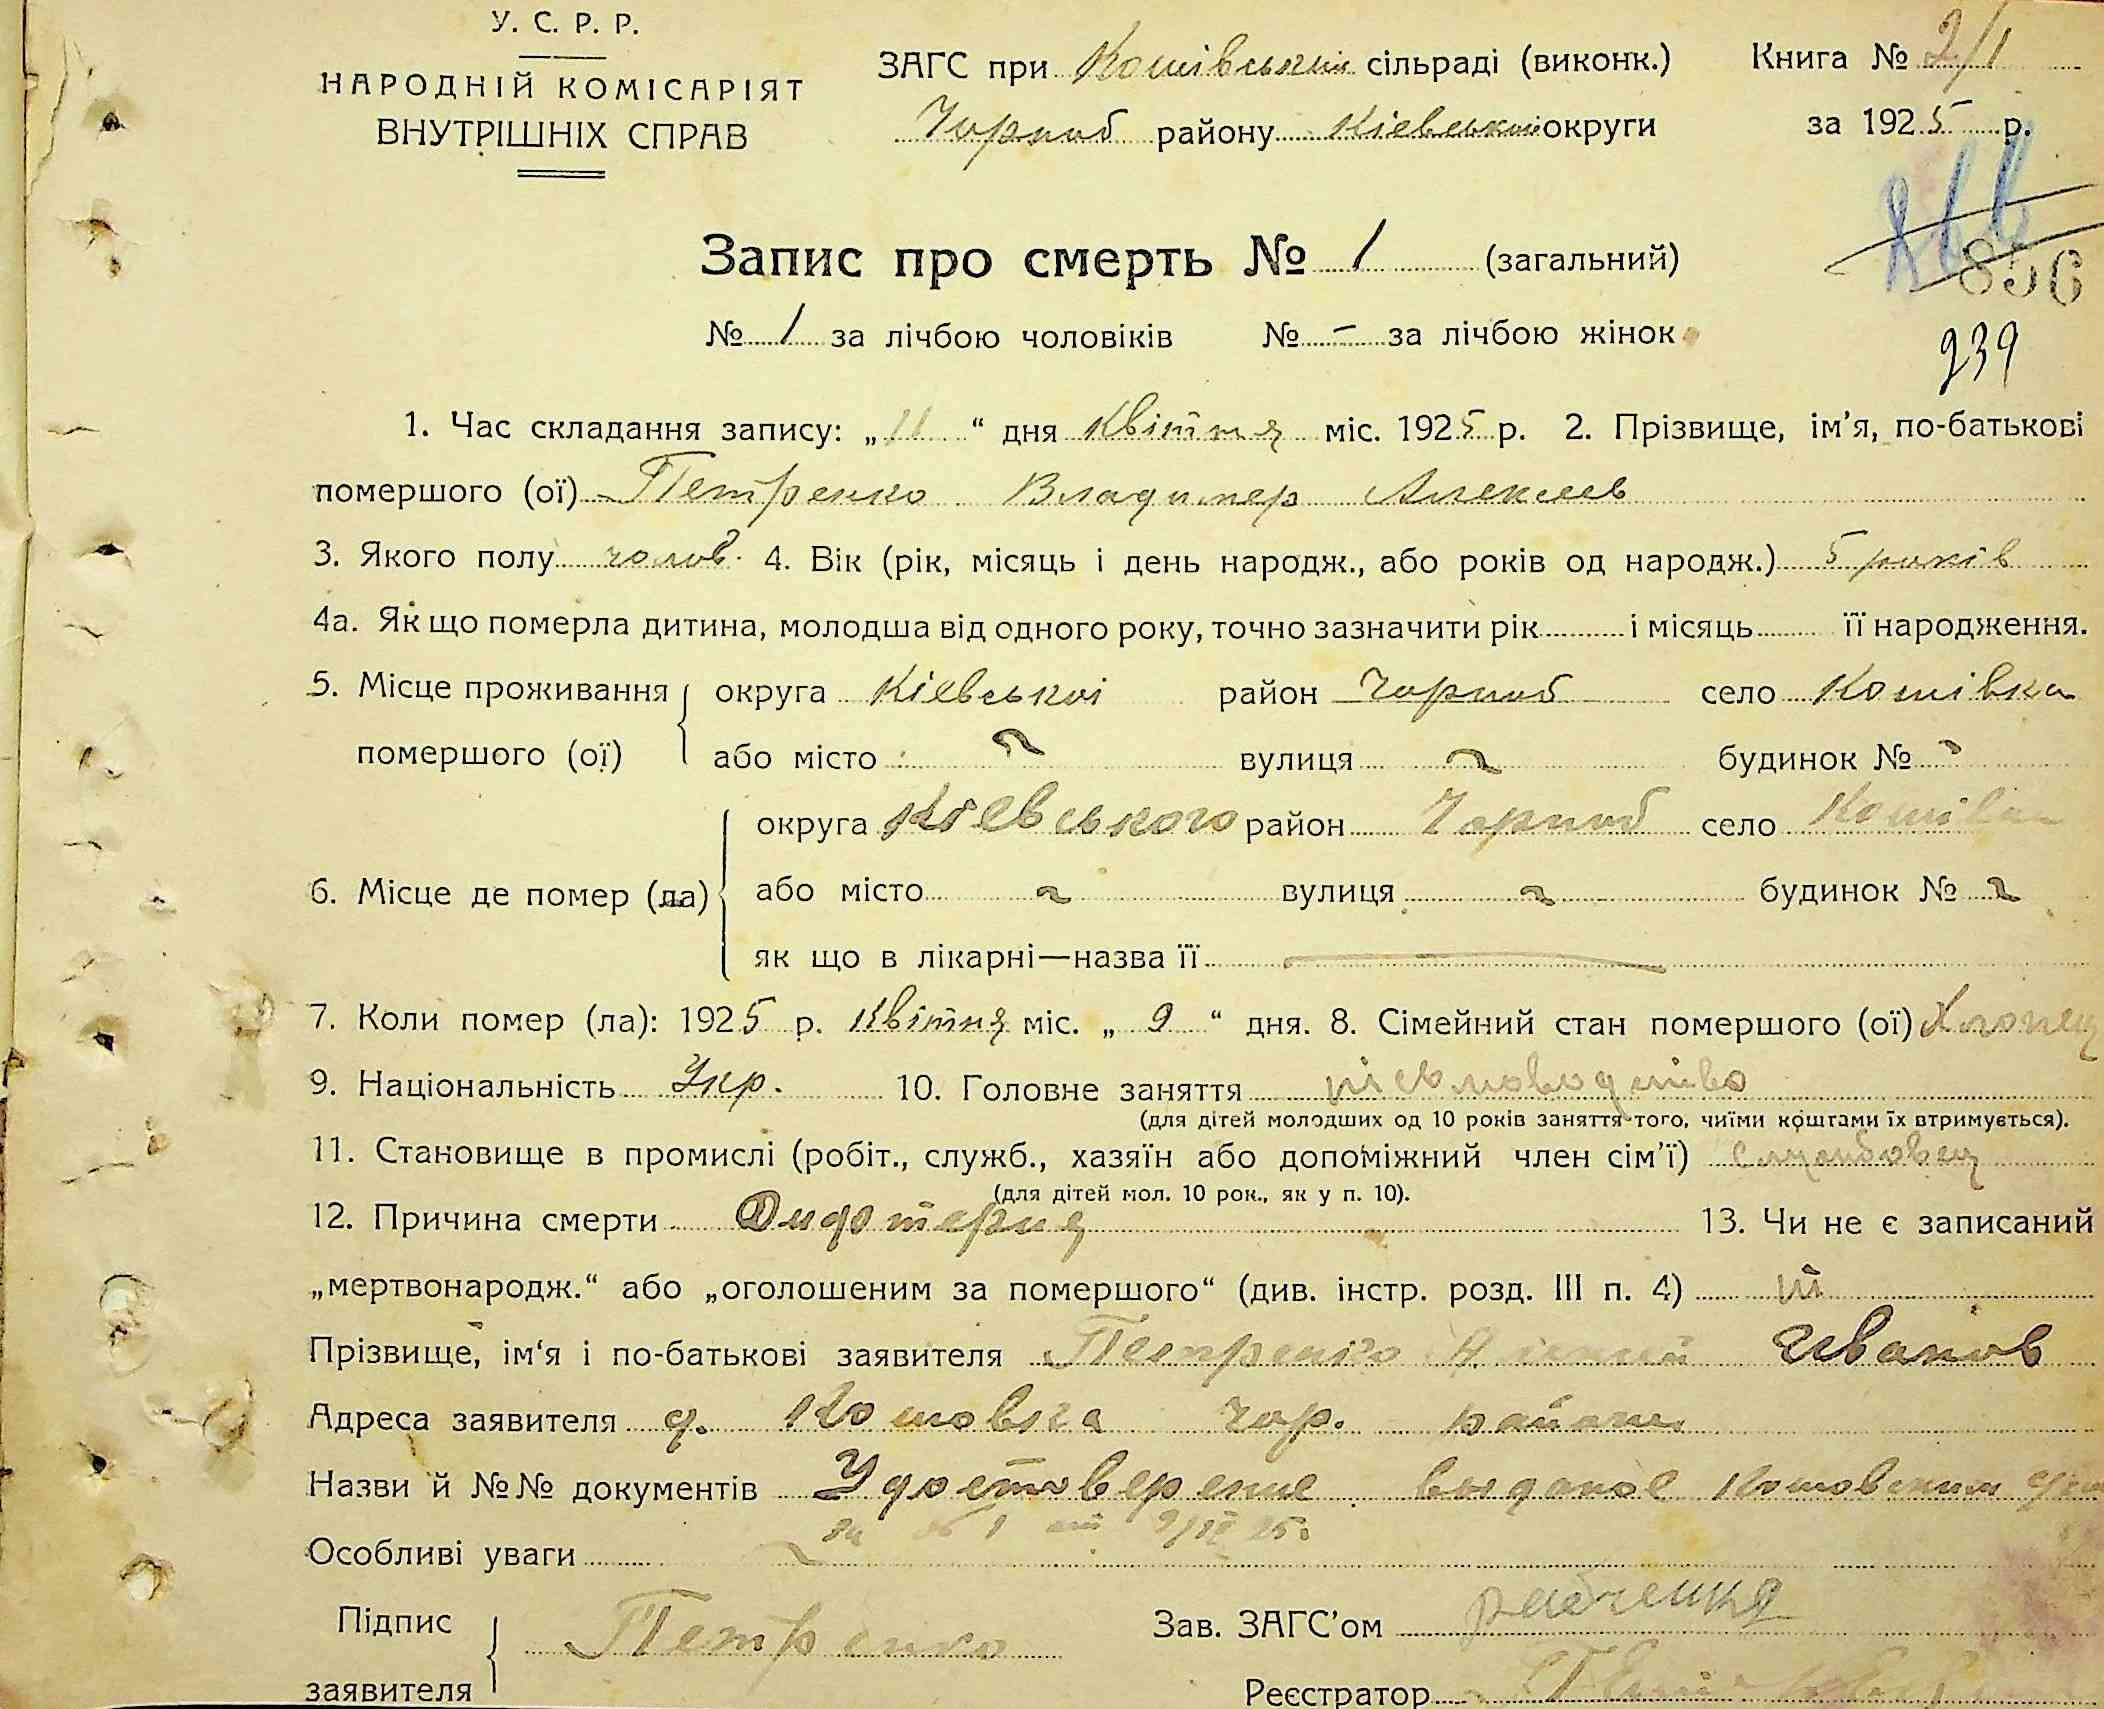 У. С. Р. Р.
НАРОДНІЙ КОМІСАРІЯТ
ВНУТРІШНІХ СПРАВ
ЗАГС при Кошівській сільраді (виконк.)
Чорноб району Кіевськой округи
Книга № 2/1
за 1925 р.
856
239
Запис про смерть № 1 (загальний)
№ 1 за лічбою чоловіків № – за лічбою жінок
1. Час складання запису: „ 11 “ дня Квітня міс. 1925 р. 2. Прізвище, ім'я, по-батькові
помершого (ої) Петренко Владимер Алексеев
3. Якого полу чолов. 4. Вік (рік, місяць і день народж., або років од народж.) 5 років
4а. Як що померла дитина, молодша від одного року, точно зазначити рік і місяць її народження.
5. Місце проживання помершого (ої) округа Кіевськоі район Чорноб село Кошівка
або місто вулиця будинок №
6. Місце де помер (ла) округа Кіевського район Чорноб село Кошівка
або місто вулиця будинок №
як що в лікарні—назва її
7. Коли помер (ла): 1925 р. Квітня міс. „ 9 “ дня. 8. Сімейний стан помершого (ої) Хлопець
9. Національність Укр. 10. Головне заняття
(для дітей молодших од 10 років заняття того, чиїми коштами їх втримується).
11. Становище в промислі (робіт., служб., хазяїн або допоміжний член сім'ї)
(для дітей мол. 10 рок., як у п. 10).
12. Причина смерти Дифтерия 13. Чи не є записаний
„мертвонародж.“ або „оголошеним за помершого“ (див. інстр. розд. III п. 4) ні
Прізвище, ім'я і по-батькові заявителя Петренко Иванов
Адреса заявителя Кошовка Чор. район
Назви й №№ документів Удостоверение выданое Кошовским
за № 1 от 9/IV 25.
Особливі уваги
Підпис заявителя Петренко
Зав. ЗАГС'ом
Реєстратор